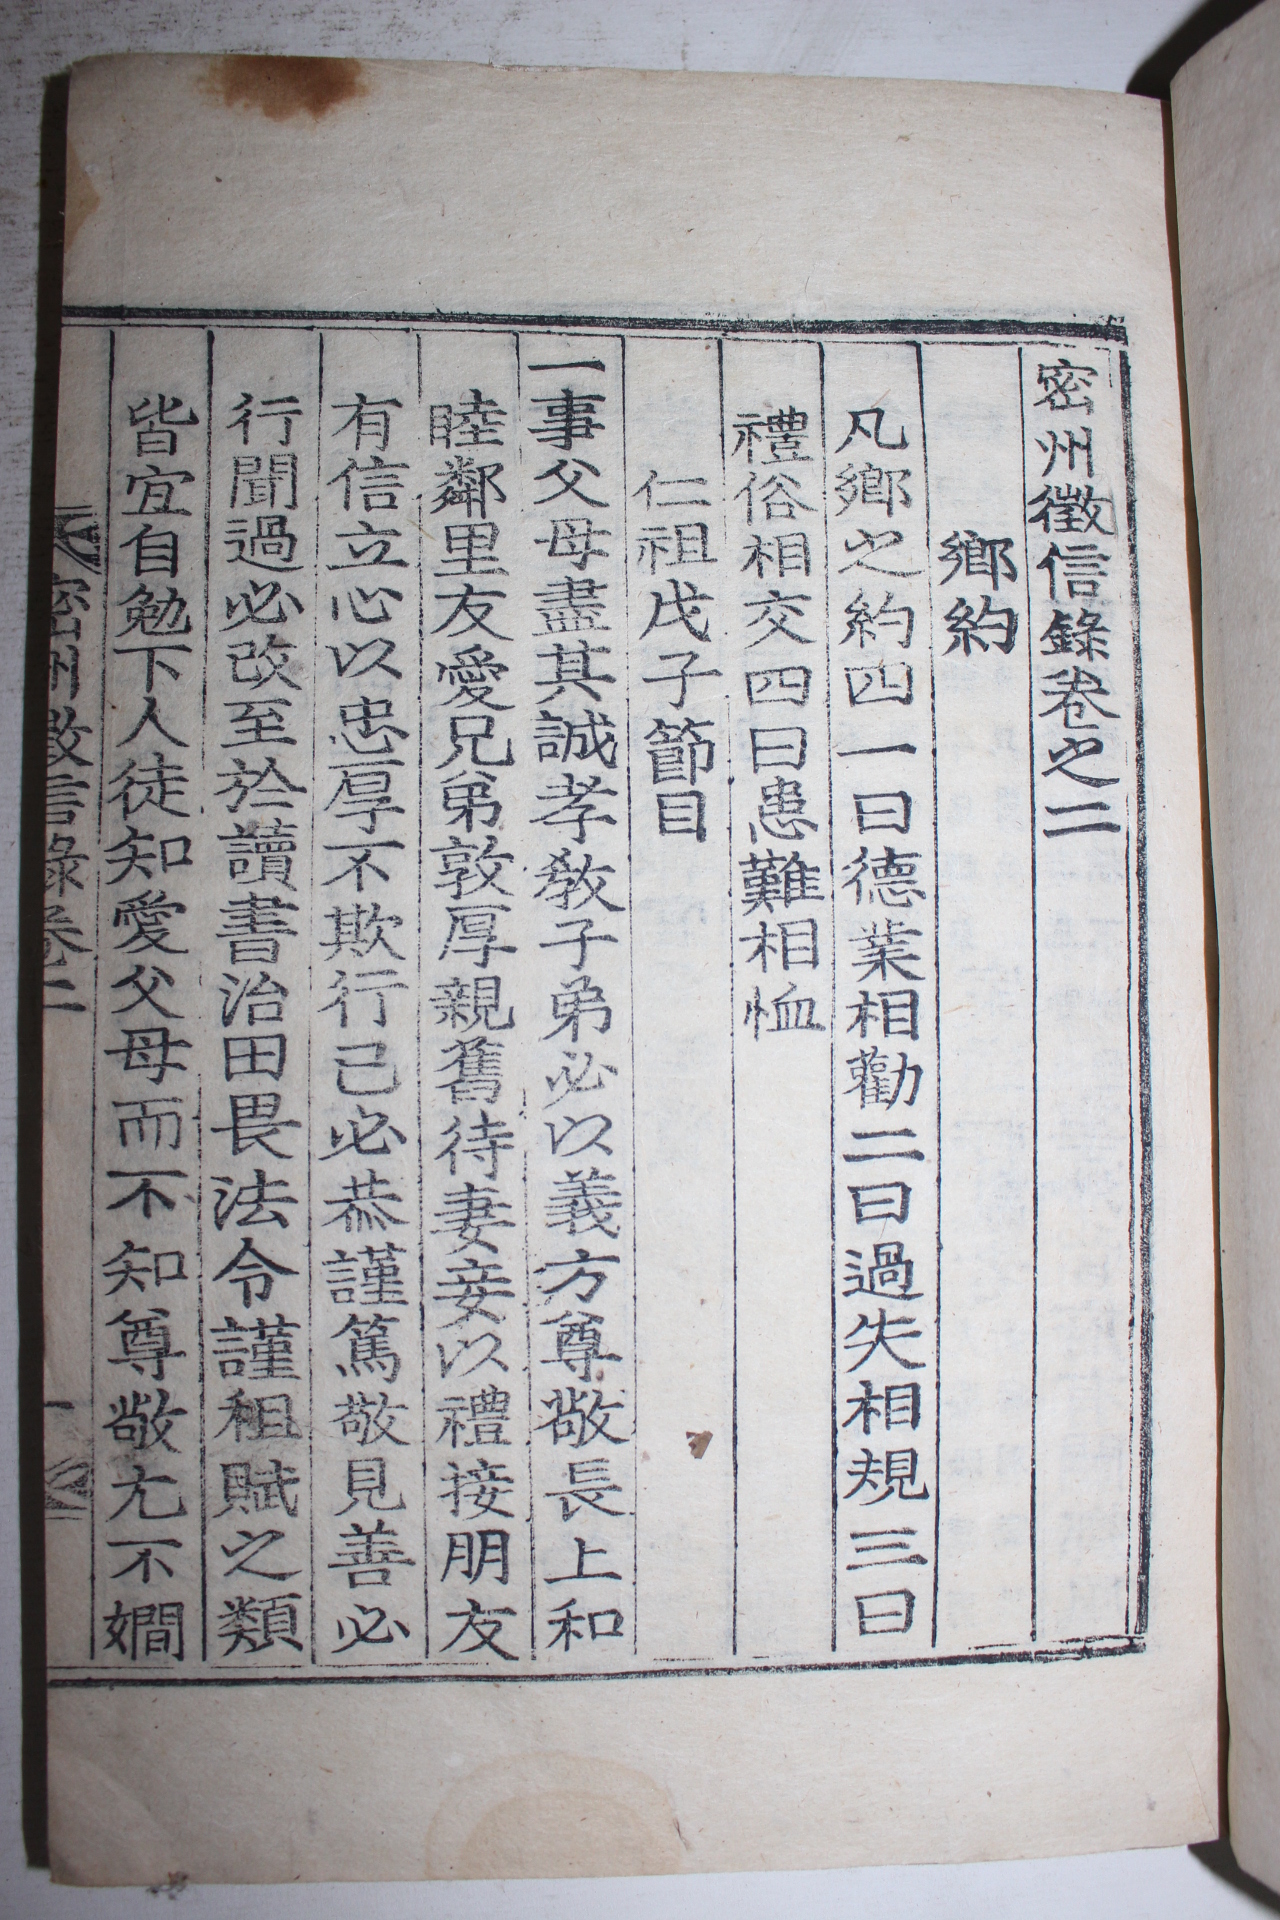 密州徵信錄卷之二
鄕約
凡鄕之約四一曰德業相勸二曰過失相規三曰
禮俗相交四曰患難相恤
仁祖戊子節目
一事父母盡其誠孝敎子弟必以義方尊敬長上和
睦鄰里友愛兄弟敦厚親舊待妻妾以禮接朋友
有信立心以忠厚不欺行己必恭謹篤敬見善必
行聞過必改至於讀書治田畏法令謹租賦之類
皆宜自勉下人徒知愛父母而不知尊敬尤不嫺
密州徵信錄卷二
一